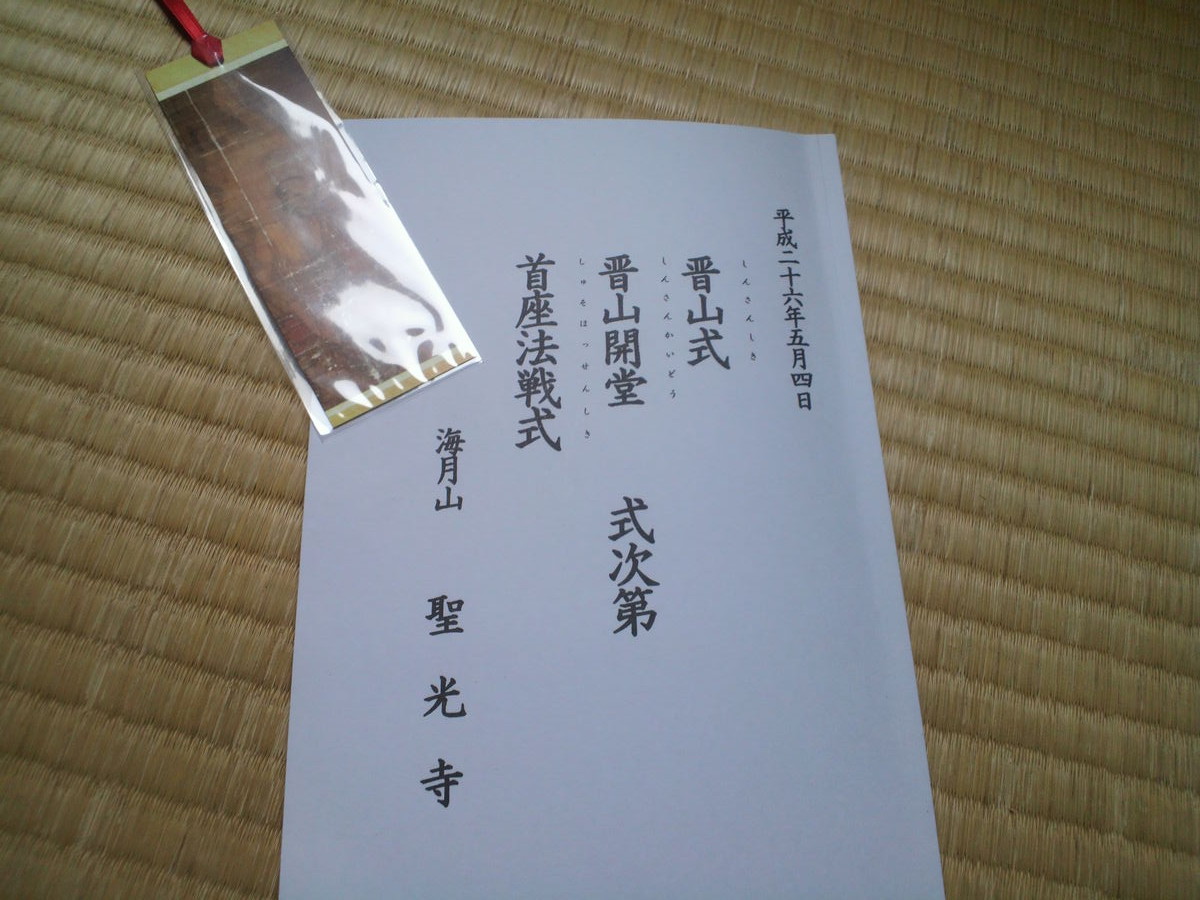 平成二十六年五月四日
しんさんしき
晋山式
しんさんかいどう
晋山開堂　式次第
しゅそほっせんしき
首座法戦式
海月山　聖光寺